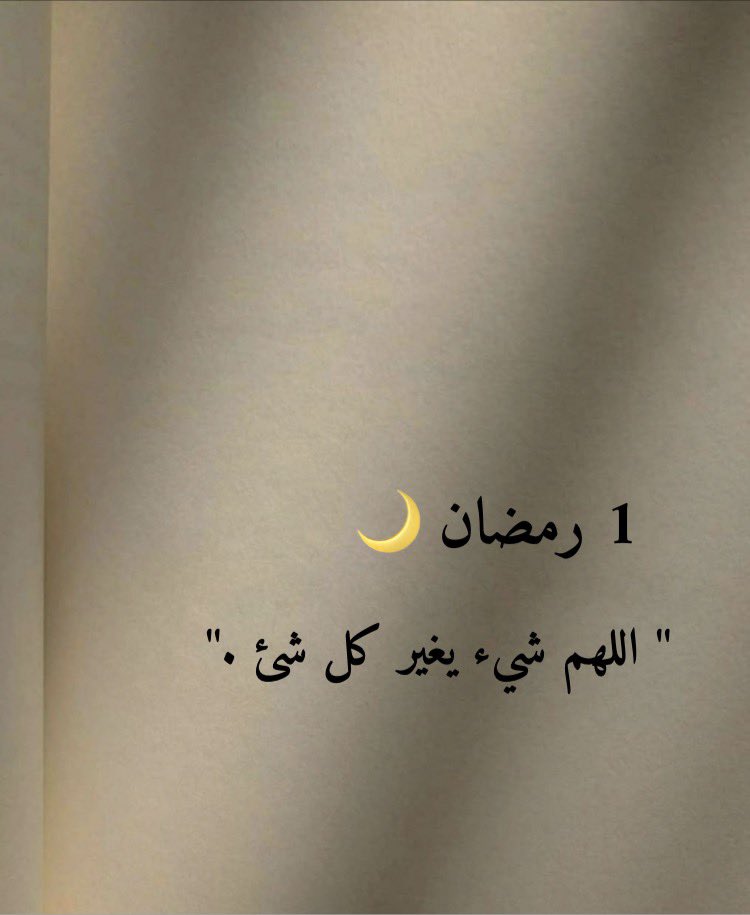 1 رمضان 🌙
" اللهم شيء يغير كل شئ ."